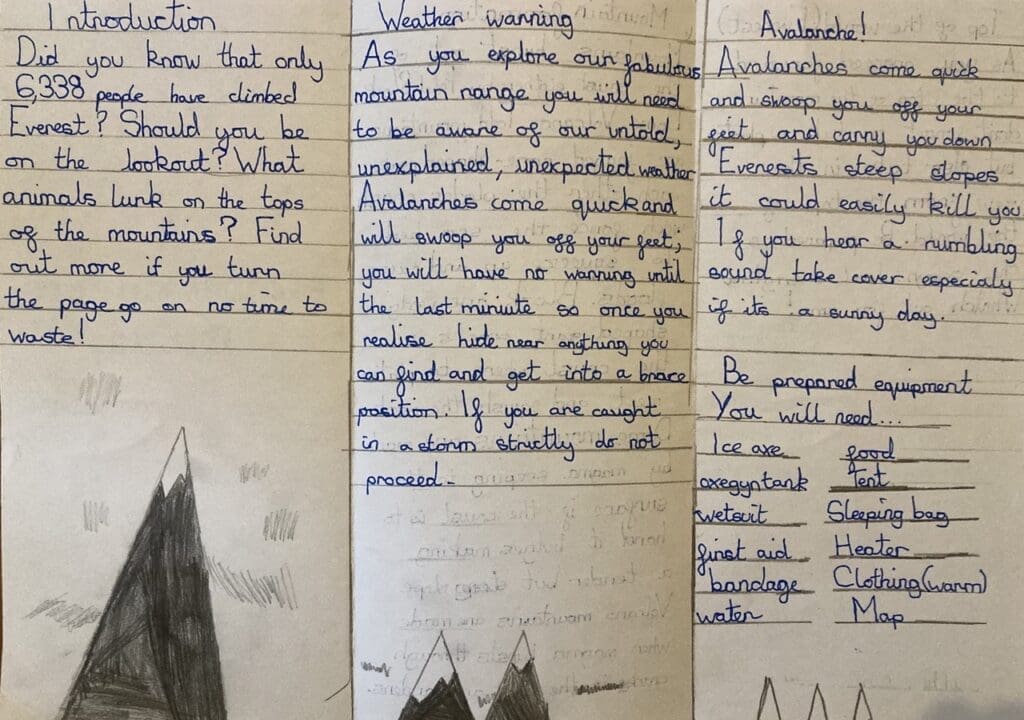 Introduction
Did you know that only
6,338 people have climbed
Everest? Should you be
on the lookout? What
animals lurk on the tops
of the mountains? Find
out more if you turn
the page go on no time to
waste!
Weather warning
As you explore our fabulous
mountain range you will need
to be aware of our untold,
unexplained, unexpected weather
Avalanches come quick and
will swoop you off your feet;
you will have no warning until
the last miniute so once you
realise hide near anything you
can find and get into a brace
position. If you are caught
in a storm strictly do not
proceed.
Avalanche!
Avalanches come quick
and swoop you off your
feet and carry you down
Everests steep slopes
it could easily kill you
If you hear a rumbling
sound take cover especialy
if its a sunny day.
Be prepared equipment
You will need...
Ice axe food
oxegyn tank Tent
wetsuit Sleeping bag
first aid Heater
bandage Clothing (warm)
water Map